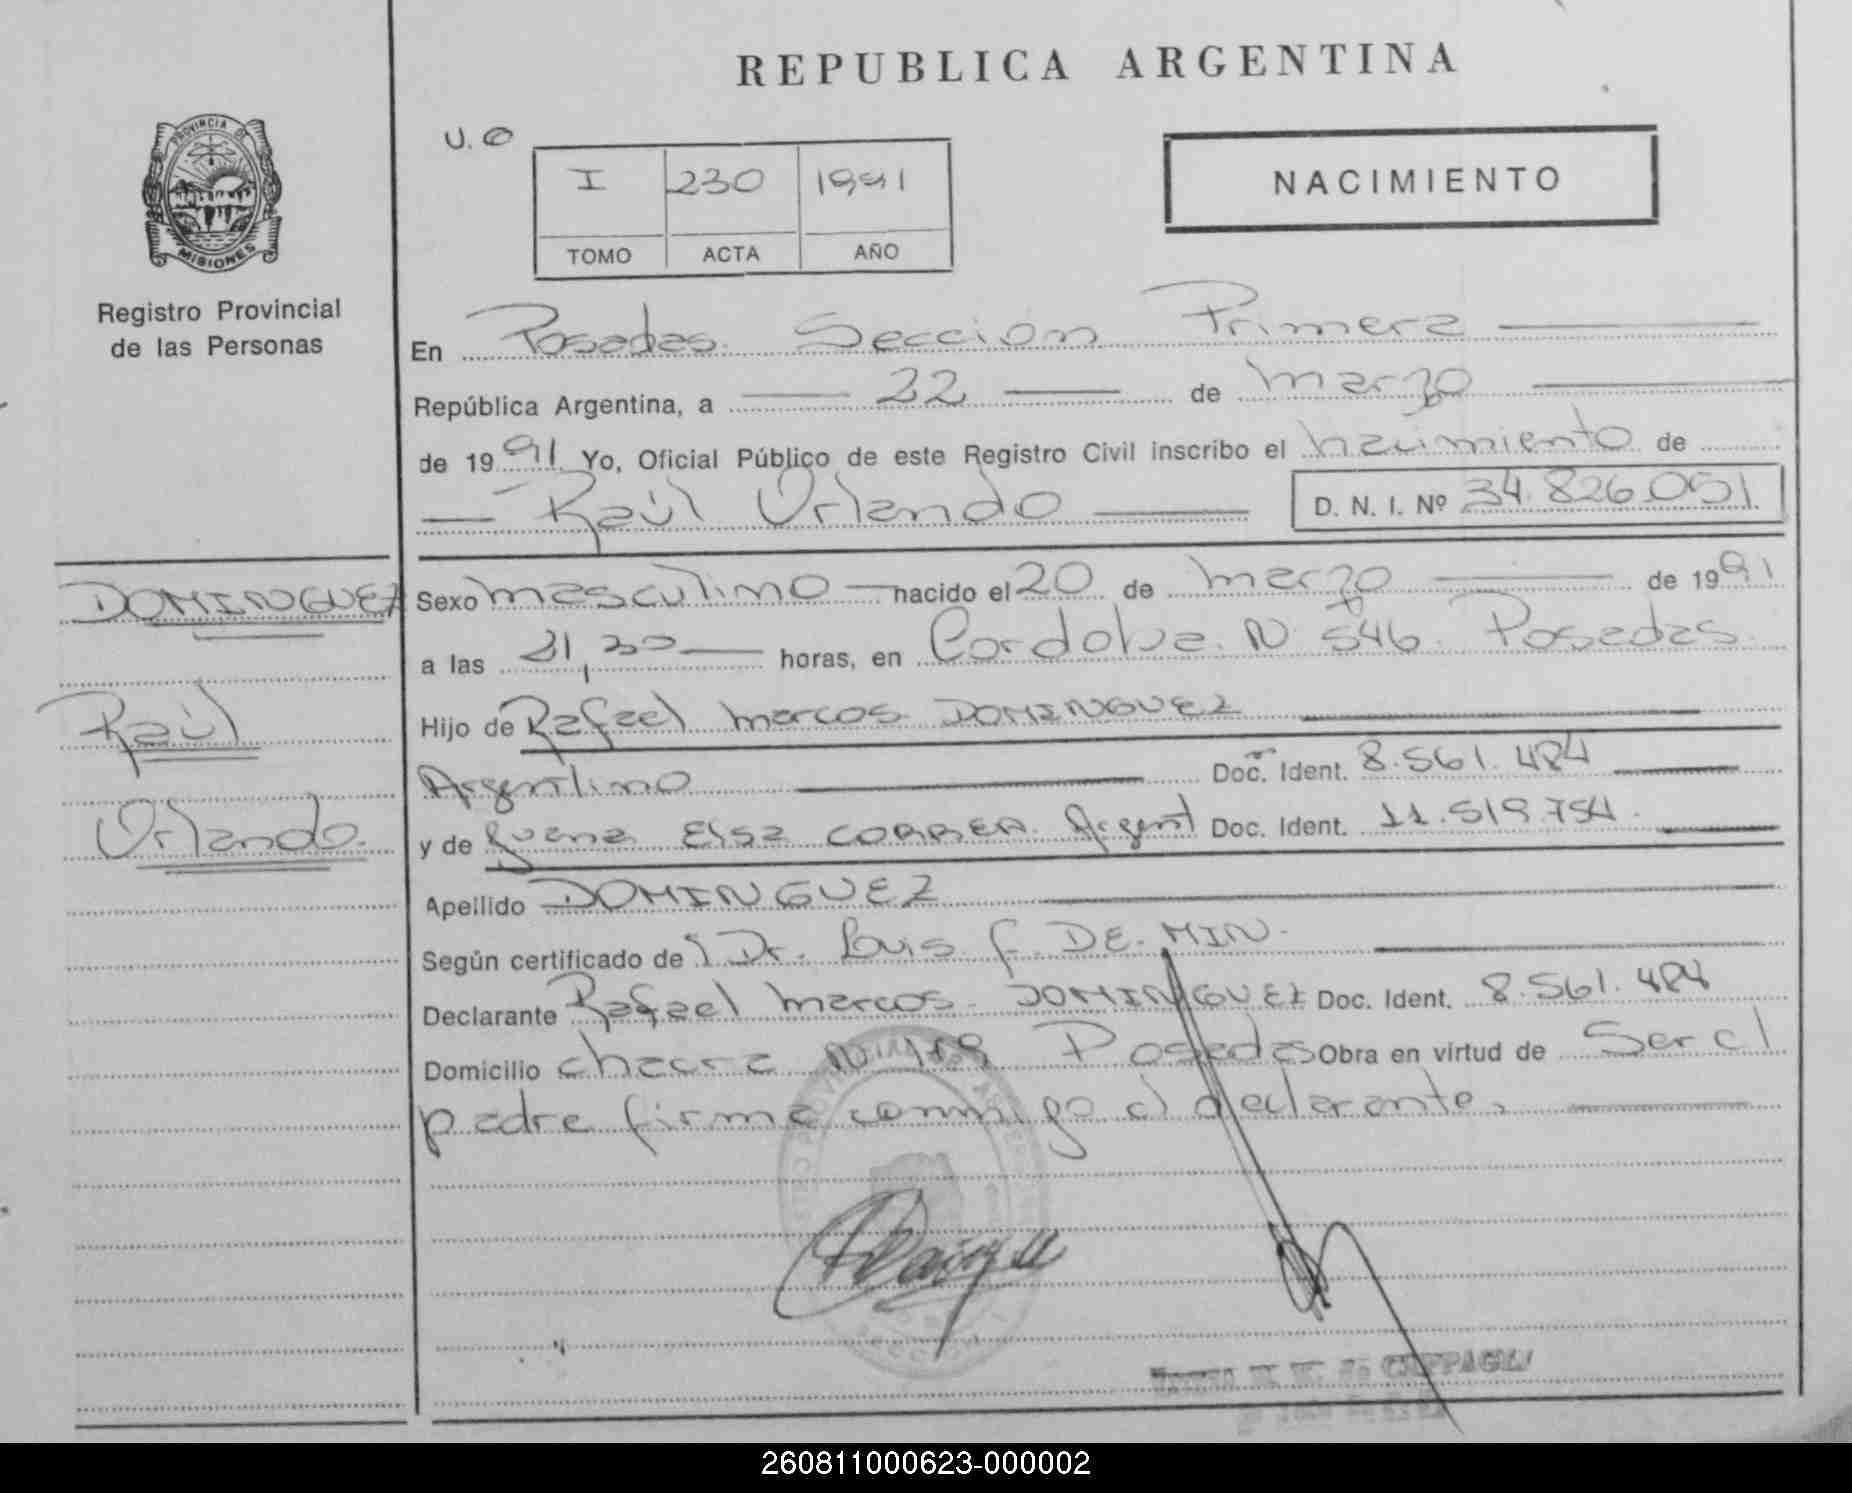 REPUBLICA ARGENTINA
PROVINCIA DE
MISIONES
Registro Provincial
de las Personas
U. O
I 230 1991
TOMO ACTA AÑO
NACIMIENTO
En Posadas Sección Primera
República Argentina, a 22 de marzo
de 1991 Yo, Oficial Público de este Registro Civil inscribo el nacimiento de
Raúl Orlando D. N. I. Nº 34.826.051
DOMINGUEZ
Raúl
Orlando
Sexo masculino nacido el 20 de marzo de 1991
a las 21,30 horas, en Cordoba N 546 Posadas
Hijo de Rafael Marcos DOMINGUEZ
Argentino Doc. Ident. 8.561.484
y de Juana Elsa CORREA Argent Doc. Ident. 11.519.754
Apellido DOMINGUEZ
Según certificado de Dr. Luis f. DE MIN
Declarante Rafael Marcos DOMINGUEZ Doc. Ident. 8.561.484
Domicilio chacra N Posadas Obra en virtud de Ser el
padre firma conmigo el declarante.
260811000623-000002